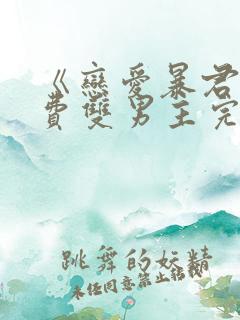 《戀愛暴君
費雙男主完
跳舞的妖精
未经同意禁止转载